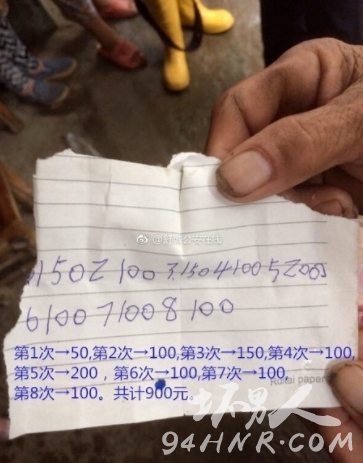 150 2 100 3.150 4 100 5 200
6 100 7 100 8 100
第1次→50,第2次→100,第3次→150,第4次→100,
第5次→200，第6次→100,第7次→100,
第8次→100。共计900元。
Ruitai paper
坏男人
94HNR.COM